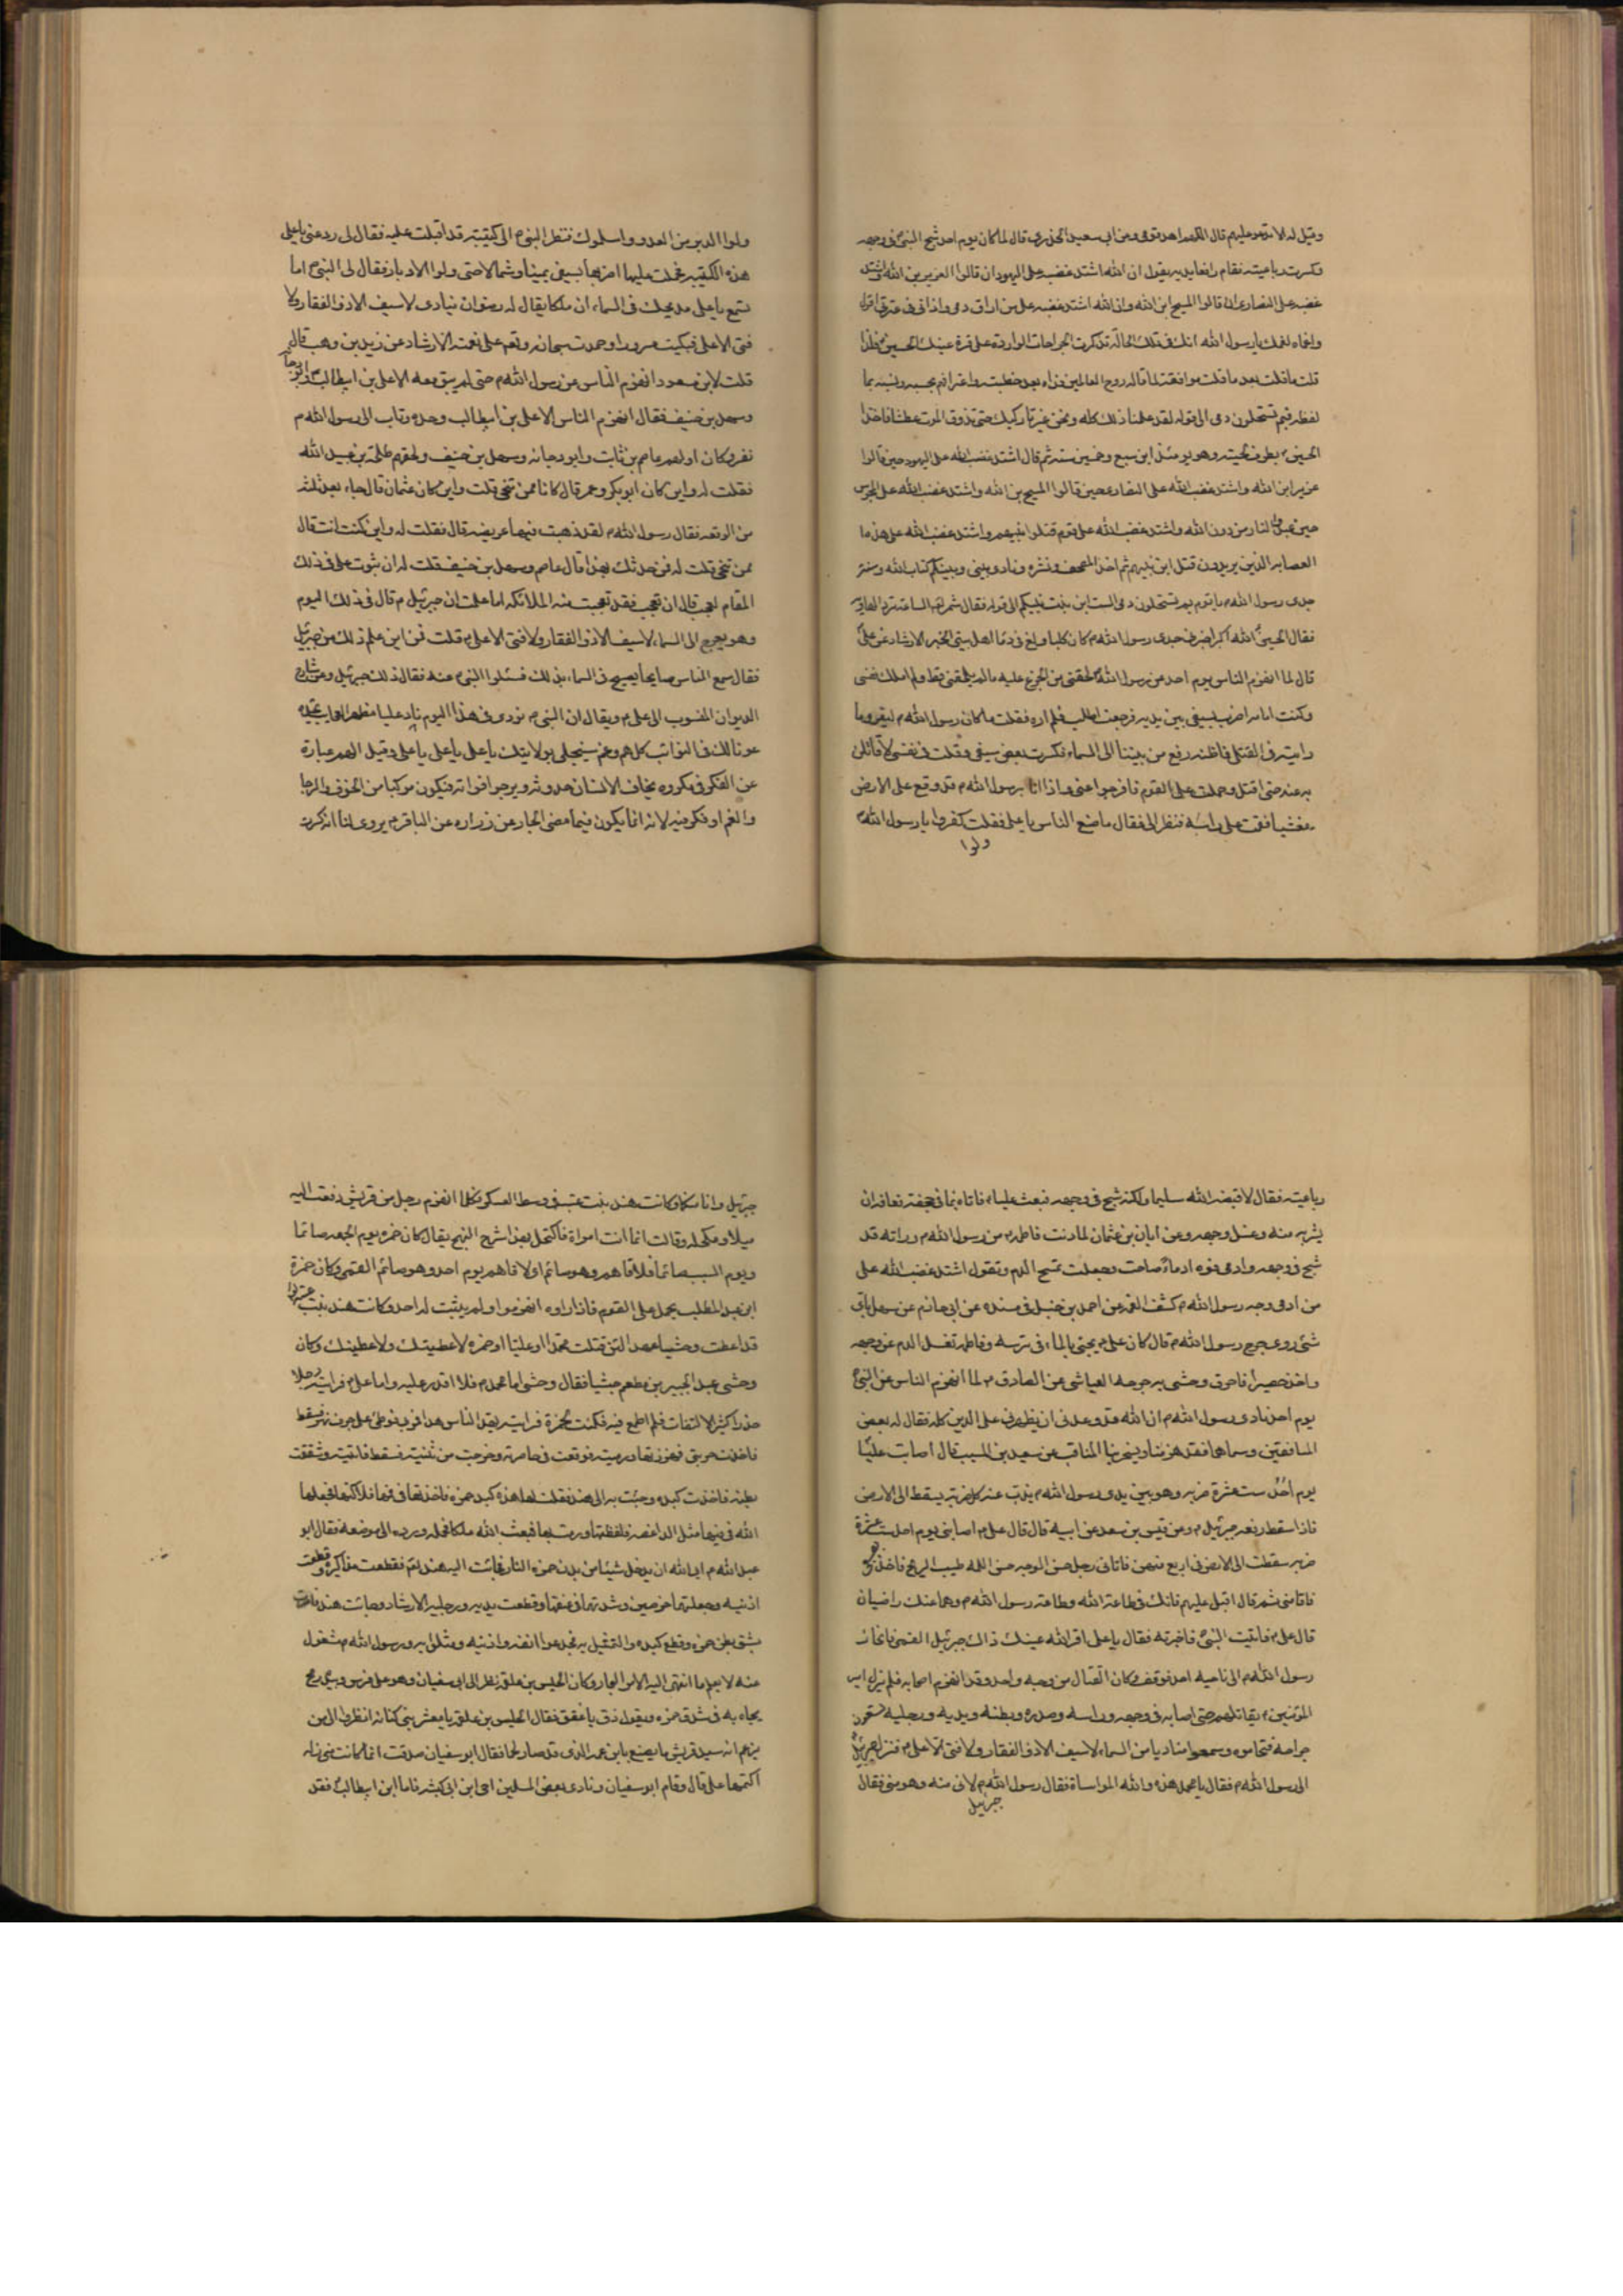 وقيل له الا تدعو عليهم قال اللهم اهد قومي وعن ابي سعيد الخدري قال لما كان يوم احد شج النبي في وجهه
وكسرت رباعيته فقام رافعا يديه يقول ان الله اشتد غضبه على اليهود ان قالوا العزير بن الله واشتد
غضبه على النصارى ان قالوا المسيح ابن الله وان الله اشتد غضبه على من اراق دمي واذاني في عترتي اقول
واغماه لغمك يا رسول الله انك في تلك الحالة تذكرت الجراحات الواردة على قرة عينك الحسين
قلت ما قلت بعد ما قلت موافقته لما قاله روح العالمين فداه بعد خطبته واعترافهم بحسبه ونسبه بما
لفظه فبم تستحلون دمي الى قوله لقد علمنا ذلك كله ونحن غير تاركيك حتى تذوق الموت عطشا فاخذ
الحسين م بطرف لحيته وهو يومئذ ابن سبع وخمسين سنة ثم قال اشتد غضب الله على اليهود حين قالوا
عزير ابن الله واشتد غضب الله على النصارى حين قالوا المسيح بن الله واشتد غضب الله على المجوس
حين عبدوا النار من دون الله واشتد غضب الله على قوم قتلوا نبيهم واشتد غضب الله على هذه
العصابه الذين يريدون قتل ابن نبيهم ثم اخذ المصحف ونشره ونادى بيني وبينكم كتاب الله وسنة
جدي رسول الله م يا قوم بم تستحلون دمي الست ابن بنت نبيكم الى قوله فقال شمر
فقال الحسين الله اكبر اخبرني جدي رسول الله م كان كلبا ولغ في دماء اهل بيتي الخبر الارشاد عن علي
قال لما انهزم الناس يوم احد عن رسول الله لحقني من الجزع عليه ما لم يلحقني قط ولم املك نفسي
وكنت امامه اضرب بسيفي بين يديه فرجعت اطلبه فلم اره فقلت ما كان رسول الله م ليفر وما
رايته في القتلى فاظنه رفع من بيننا الى السماء فكسرت بعض سيفي وقلت في نفسي لاقاتلن
به عنه حتى اقتل وحملت على القوم فافرجوا عني واذا انا برسول الله م قد وقع على الارض
مغشيا فقمت على راسه فنظر الي فقال ما صنع الناس يا علي فقلت كفروا يا رسول الله
ولوا
ولوا الدبر من العدو واسلموك فنظر النبي م الى كتيبة قد اقبلت عليه فقال لي رد عني يا علي
هذه الكتيبة فحملت عليها اضربها بسيفي يمينا وشمالا حتى ولوا الادبار فقال لي النبي م اما
تسمع يا علي مديحك في السماء ان ملكا يقال له رضوان ينادي لا سيف الا ذو الفقار ولا
فتى الا علي فبكيت سرورا وحمدت سبحانه وتعم على نعمته الارشاد عن زيد بن وهب قال
قلت لابن مسعود انهزم الناس عن رسول الله م حتى لم يبق معه الا علي بن ابيطالب م وابو دجانه
وسهل بن حنيف فقال انهزم الناس الا علي بن ابيطالب وحده وتاب الى رسول الله م
نفر وكان اولهم عاصم بن ثابت وابو دجانه وسهل بن حنيف ولحقهم طلحة بن عبيد الله
فقلت له واين كان ابو بكر وعمر قال كانا ممن تنحى قلت واين كان عثمان قال جاء بعد ثلثه
من الوقعه فقال رسول الله م لقد ذهبت فيها عريضه قال فقلت له واين كنت انت قال
ممن تنحى قلت له فمن حدثك بهذا قال عاصم وسهل بن حنيف قلت له ان ثبوت علي في ذلك
المقام لعجب قال ان تعجب فقد تعجبت منه الملائكه اما علمت ان جبرئيل م قال في ذلك اليوم
وهو يعرج الى السماء لا سيف الا ذو الفقار ولا فتى الا علي م قلت فمن اين علم ذلك من جبرئيل
فقال سمع الناس صايحا يصيح في السماء بذلك فسئلوا النبي م عنه فقال ذلك جبرئيل وعن شارح
الديوان المنسوب الى علي م ويقال ان النبي م نودي في هذا اليوم ناد عليا مظهر العجايب تجده
عونا لك في النوائب كل هم وغم سينجلي بولايتك يا علي يا علي يا علي وقيل الهم عبارة
عن الفكر في مكروه يخاف الانسان حدوثه ويرجو افواته فيكون مركبا من الخوف والرجا
والغم اوفكر فيه لانه انما يكون فيما مضى البحار عن زراره عن الباقر م يروى لنا انه كسرت
رباعيته فقال لا قبضه الله سليما ولكنه شج في وجهه فبعث عليا م فاتاه بماء في جحفته فعافه ان
يشربه منه وغسل وجهه وعن ابان بن عثمان لما دنت فاطمه م من رسول الله م وراته قد
شج في وجهه وادمي فوه ادماءً صاحت وجعلت تمسح الدم وتقول اشتد غضب الله على
من ادمى وجه رسول الله م كشف الغمه عن احمد بن حنبل في مسنده عن ابي حازم عن سهل باي
شئ دوي جرح رسول الله م قال كان علي م يجئ بالماء في ترسه وفاطمه تغسل الدم عن وجهه
واخذ حصيرا فاحرق وحشى به جرحه العياشي عن الصادق م لما انهزم الناس عن النبي
يوم احد نادى رسول الله م ان الله قد وعدني ان يظهرني على الدين كله فقال له بعض
المنافقين وسماهما فقد هزمنا ويسخر بنا المناقب عن سعيد بن المسيب قال اصابت عليا
يوم احد ستة عشرة ضربه وهو بين يدي رسول الله م يذب عنه كل ضربه يسقط الى الارض
فاذا سقط رفعه جبرئيل م وعن قيس بن سعد عن ابيه قال قال علي م اصابني يوم احد ست عشرة
ضربه سقطت الى الارض في اربع منهن فاتاني رجل حسن الوجه حسن اللمه طيب الريح فاخذ
فاقامني ثم قال اقبل عليهم فانك في طاعة الله وطاعة رسول الله م وهما عنك راضيان
قال علي م فاتيت النبي فاخبرته فقال يا علي اقر الله عينك ذاك جبرئيل القمي فانحاز
رسول الله م الى ناحيه احد فوقف وكان القتال من وجه واحد وقد انهزم اصحابه فلم يزل امير
المؤمنين م يقاتلهم حتى اصابه في وجهه وراسه وصدره وبطنه ويديه ورجليه
جراحه فتحاموه وسمعوا مناديا من السماء لا سيف الا ذو الفقار ولا فتى الا علي م فنزل جبرئيل
الى رسول الله م فقال يا محمد هذه والله المواساة فقال رسول الله م لاني منه وهو مني فقال
جبرئيل
جبرئيل وانا منكما وكانت هند بنت عتبه في وسط العسكر فكلما انهزم رجل من قريش دفعت اليه
ميلا ومكحله وقالت انما انت امراة فاكتحل بهذا شرح النهج يقال كان حمزه يوم الجمعه صائما
ويوم السبت صائما فلاقاهم وهو صائم اولا فاهم يوم احد وهو صائم القمي وكان حمزة
ابن عبد المطلب يحمل على القوم فاذا راوه انهزموا ولم يثبت له احد وكانت هند بنت عتبه
قد اعطت وحشيا عهدا لئن قتلت محمدا او عليا او حمزه لاعطيتك ولاعطينك وكان
وحشي عبد الجبير بن مطعم حبشيا فقال وحشي اما محمد م فلا اقدر عليه واما علي م فرايته رجلا
حذرا كثير الالتفات فلم اطمع فيه فكمنت لحمزة فرايته يهد الناس هدا فمر بي فوطئ على جرف نهر فسقط
فاخذت حربتي فهززتها ورميته فوقعت في خاصرته وخرجت من ثنيته فسقط فاتيته وشققت
بطنه فاخذت كبده وجئت به الى هند فقلت لها هذه كبد حمزه فاخذتها في فمها فلاكتها فجعلها
الله في فيها مثل الداغصه فلفظتها ورمت بها فبعث الله ملكا فحمله ورده الى موضعه فقال ابو
عبد الله م ابى الله ان يدخل شيئا من بدن حمزه النار فجائت اليه هند لعم فقطعت مذاكيره وقطعت
اذنيه وجعلتهما خرصين وشدتهما في عنقها وقطعت يديه ورجليه الارشاد وجائت هند فامرت
بشق بطن حمزه وقطع كبده والتمثيل به فجدعوا انفه واذنيه ومثلوا به ورسول الله م مشغول
عنه لا يعلم ما انتهى اليه الامر البحار وكان الحليس بن علقمه نظر الى ابي سفيان وهو على فرس وبيده رمح
يجاء به في شدق حمزه ويقول ذق يا عقق فقال الحليس بن علقمه يا معشر بني كنانه انظروا الى من
يزعم انه سيد قريش ما يصنع بابن عمه الذي قد صار لحما فقال ابو سفيان صدقت انما كانت مني زله
اكتمها علي قال وقام ابو سفيان ونادى بعض المسلمين احي ابن ابي كبشه فاما ابن ابيطالب فقد